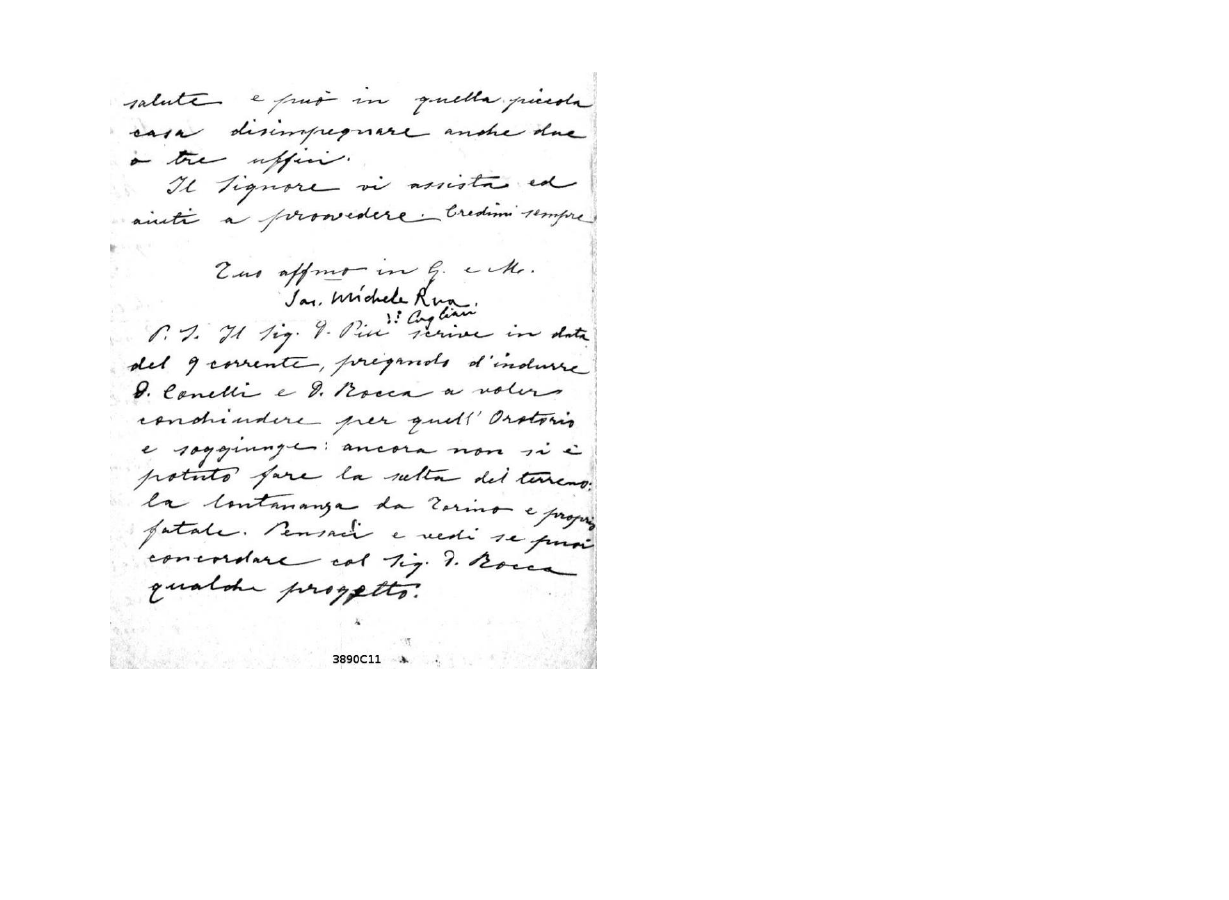 salute e può in quella piccola
casa disimpegnare anche due
o tre uffici.
Il Signore vi assista ed
aiuti a provvedere. Credimi sempre
Tuo affmo in G. e M.
Sac. Michele Rua.
di Cagliari
P. S. Il Sig. D. Piu scrive in data
del 9 corrente, pregando d'indurre
D. Conelli e D. Rocca a voler
conchiudere per quell' Oratorio
e soggiunge: ancora non si è
potuto fare la scelta del terreno:
la lontananza da Torino e proprio
fatale. Pensaci e vedi se puoi
concordare col Sig. D. Rocca
qualche progetto.
3890C11